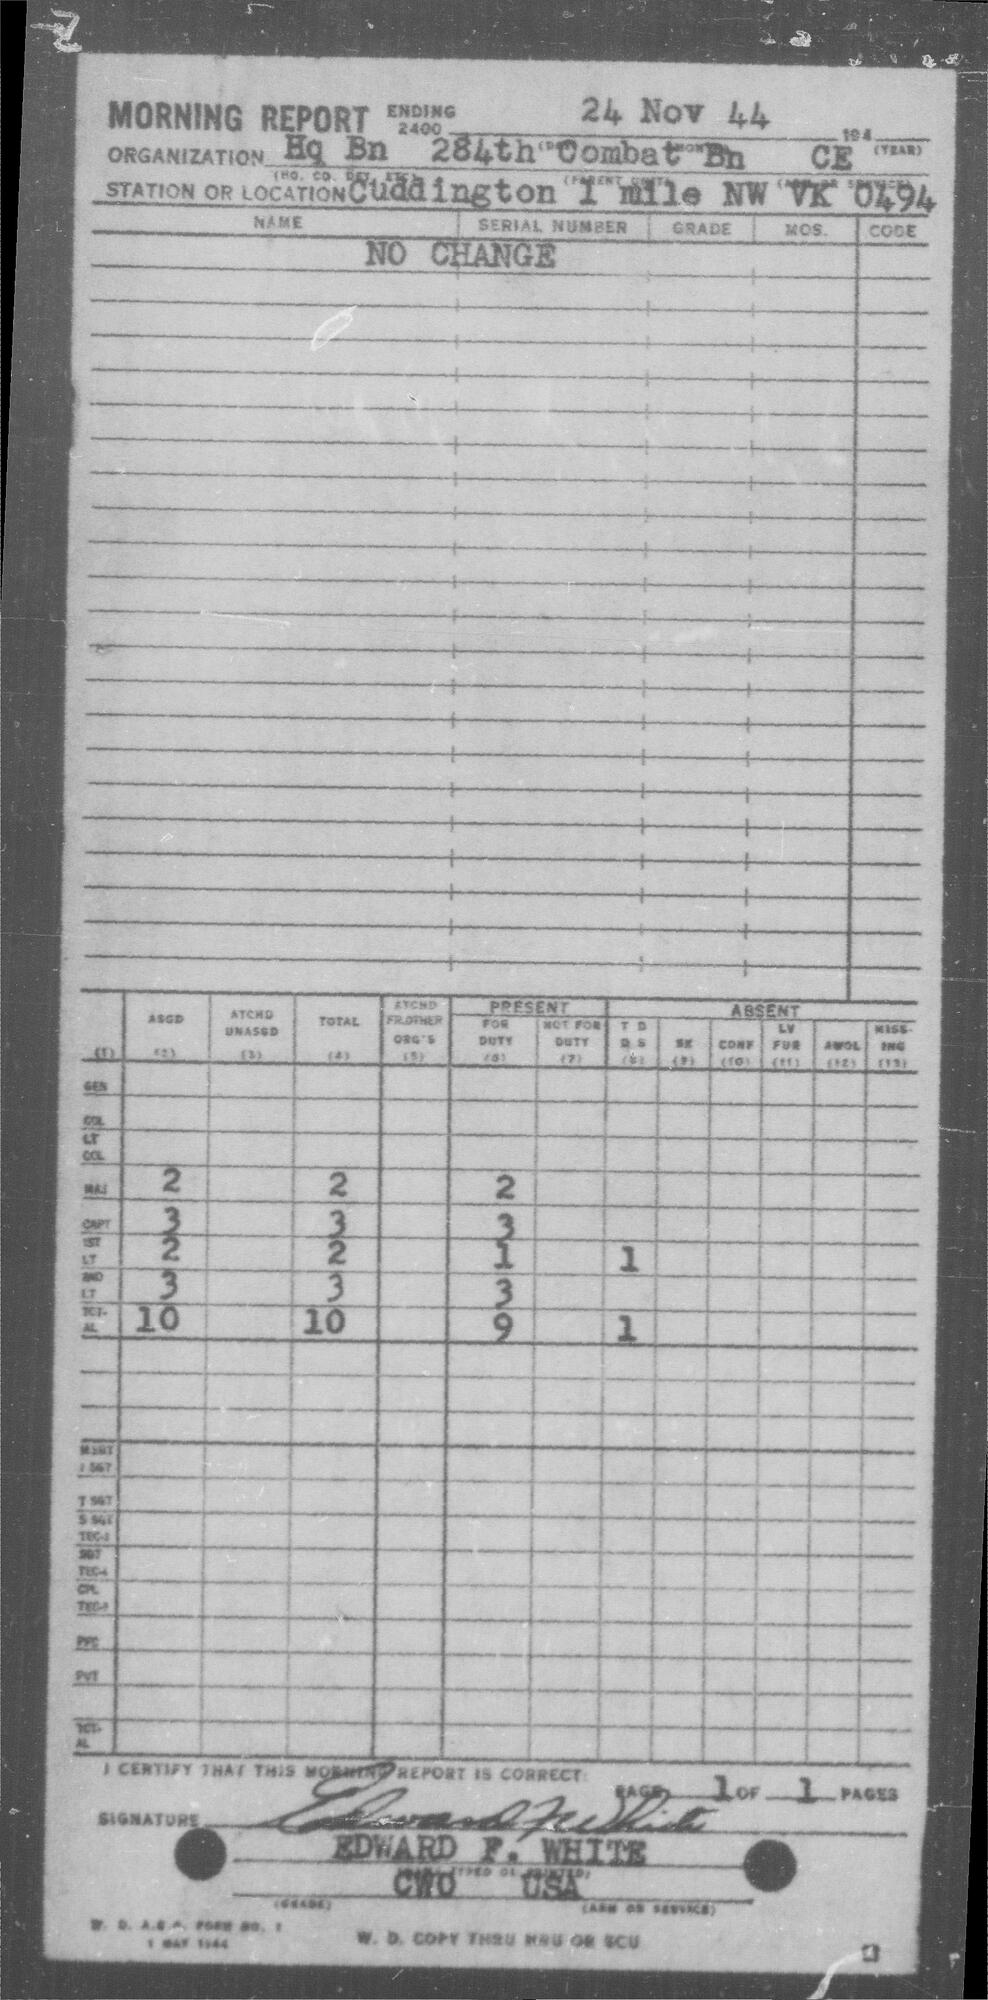 MORNING REPORT ENDING 2400 24 Nov 44 194 (YEAR)
ORGANIZATION Hq Bn 284th Combat Bn CE
STATION OR LOCATION Cuddington 1 mile NW VK 0494
NAME SERIAL NUMBER GRADE MOS. CODE
NO CHANGE
PRESENT ABSENT
(1) ASGD (2) ATCHD UNASGD (3) TOTAL (4) ATCHD FR.OTHER ORG'S (5) FOR DUTY (6) NOT FOR DUTY (7) T D D S (8) SK (9) CONF (10) LV FUR (11) AWOL (12) MISS-ING (13)
GEN
COL
LT COL
MAJ 2 2 2
CAPT 3 3 3
1ST LT 2 2 1 1
2ND LT 3 3 3
TOT-AL 10 10 9 1
M SGT
1 SGT
T SGT
S SGT
TEC-3
SGT
TEC-4
CPL
TEC-5
PFC
PVT
TOT-AL
I CERTIFY THAT THIS MORNING REPORT IS CORRECT:
PAGE 1 OF 1 PAGES
SIGNATURE Edward F White
EDWARD F. WHITE
(NAME TYPED OR PRINTED)
CWO USA
(GRADE) (ARM OR SERVICE)
W. D. A.G.O. FORM NO. 1
1 MAY 1944
W. D. COPY THRU MRU OR SCU